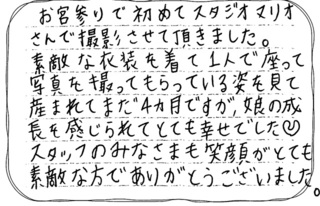 お宮参りで初めてスタジオマリオ
さんで撮影させて頂きました。
素敵な衣装を着て1人で座って
写真を撮ってもらっている姿を見て
産まれてまだ4ヵ月ですが、娘の成
長を感じられてとても幸せでした
スタッフのみなさまも笑顔がとても
素敵な方でありがとうございました。